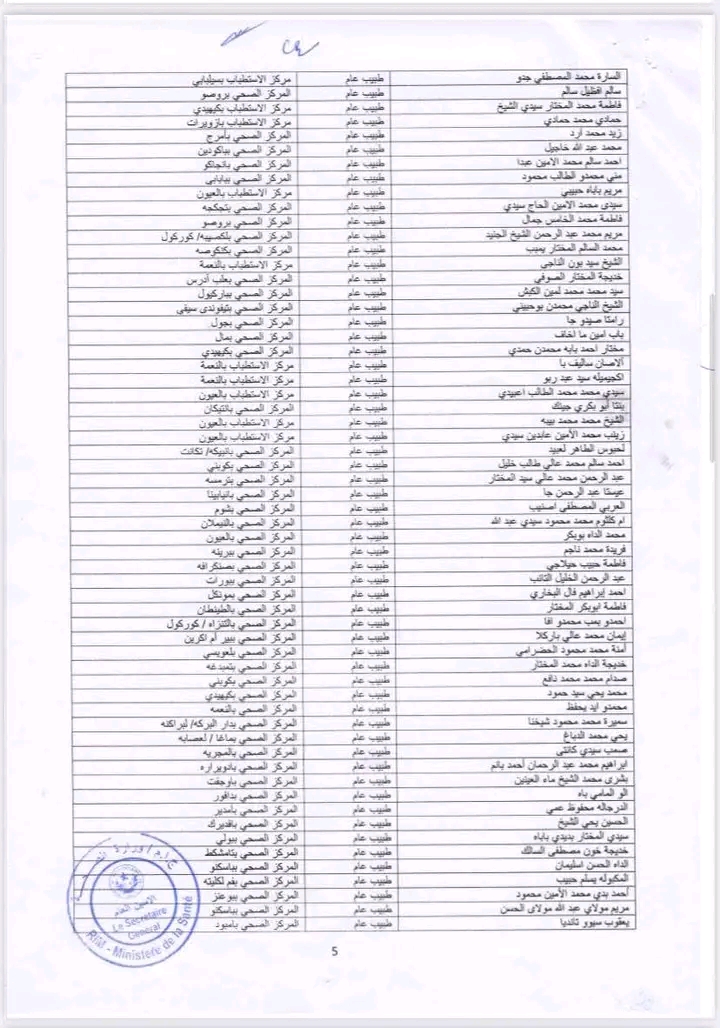 السارة محمد المصطفي جدو طبيب عام مركز الاستطباب بسيلبابي
سالم افظيل سالم طبيب عام المركز الصحي بروصو
فاطمة محمد المختار سيدي الشيخ طبيب عام مركز الاستطباب بكيهيدي
حمادي محمد حمادي طبيب عام مركز الاستطباب بازويرات
زيد محمد أرد طبيب عام المركز الصحي بأمرج
محمد عبد الله خاجيل طبيب عام المركز الصحي بباكودين
احمد سالم محمد الامين عبدا طبيب عام المركز الصحي بانجاكو
مني محمدو الطالب محمود طبيب عام المركز الصحي ببابابي
مريم باباه حبيبي طبيب عام مركز الاستطباب بالعيون
سيدى محمد الامين الحاج سيدي طبيب عام المركز الصحي بتجكجه
فاطمة محمد الخامس جمال طبيب عام المركز الصحي بروصو
مريم محمد عبد الرحمن الشيخ الجنيد طبيب عام المركز الصحي بلكصيبه/ كوركول
محمد السالم المختار يمبب طبيب عام المركز الصحي بكنكوصه
الشيخ سيد بون الناجي طبيب عام مركز الاستطباب بالنعمة
خديجة المختار الصوفي طبيب عام المركز الصحي بعلب أدرس
سيد محمد محمد لمين الكبش طبيب عام المركز الصحي بباركيول
الشيخ الناجي محمدن بوحبيني طبيب عام المركز الصحي بتيفوندى سيفى
راماتا صيدو جا طبيب عام المركز الصحي بجول
باب امين ما اخاف طبيب عام المركز الصحي بمال
مختار احمد بابه محمدن حمدي طبيب عام المركز الصحي بكيهيدي
ألاصان ساليف با طبيب عام مركز الاستطباب بالنعمة
اكجيميله سيد عبد ربو طبيب عام مركز الاستطباب بالنعمة
سيدي محمد محمد الطالب اعبيدي طبيب عام مركز الاستطباب بالعيون
بنتا أبو بكري جينك طبيب عام المركز الصحي بانتيكان
الشيخ محمد محمد بيبه طبيب عام مركز الاستطباب بالعيون
زينب محمد الأمين عابدين سيدي طبيب عام مركز الاستطباب بالعيون
لحبوس الطاهر لعبيد طبيب عام المركز الصحي بانبيكه/ تكانت
احمد سالم محمد عالي طالب خليل طبيب عام المركز الصحي بكوبني
عبد الرحمن محمد عالي سيد المختار طبيب عام المركز الصحي بترمسه
عيستا عبد الرحمن جا طبيب عام المركز الصحي بانيابينا
العربي المصطفي اصنيب طبيب عام المركز الصحي بشوم
ام كلثوم محمد محمود سيدي عبد الله طبيب عام المركز الصحي بالنيملان
محمد الداه بوبكر طبيب عام المركز الصحي بالعيون
فريدة محمد ناجم طبيب عام المركز الصحي ببرينه
فاطمة حبيب حيلاجي طبيب عام المركز الصحي بصنكرافه
عبد الرحمن الخليل النائب طبيب عام المركز الصحي ببورات
احمد إبراهيم فال البخاري طبيب عام المركز الصحي بمونكل
فاطمة ابوبكر المختار طبيب عام المركز الصحي بالطينطان
احمدو بمب محمدو افا طبيب عام المركز الصحي بالتنزاه / كوركول
إيمان محمد عالي باركلا طبيب عام المركز الصحي ببير أم اكرين
أمنة محمد محمود الحضرامي طبيب عام المركز الصحي بلعويسي
خديجة الداه محمد المختار طبيب عام المركز الصحي بتمبدغه
صدام محمد محمد نافع طبيب عام المركز الصحي بكوبني
محمد يحي سيد حمود طبيب عام المركز الصحي بكيهيدي
محمدو أيد يحفظ طبيب عام المركز الصحي بالنعمه
سميرة محمد محمود شيخنا طبيب عام المركز الصحي بدار البركه/ لبراكنه
يحي محمد الدباغ طبيب عام المركز الصحي بماغا / لعصابه
صمب سيدي كانتى طبيب عام المركز الصحي بالمجريه
ابراهيم محمد عبد الرحمان أحمد باتم طبيب عام المركز الصحي بادويراره
بشرى محمد الشيخ ماء العينين طبيب عام المركز الصحي باوجفت
الو المامي باه طبيب عام المركز الصحي بدافور
الدرجاله محفوظ عمي طبيب عام المركز الصحي بامدير
الحسين يحي الشيخ طبيب عام المركز الصحي بافديرك
سيدي المختار بديدي باباه طبيب عام المركز الصحي ببولي
خديجة خون مصطفى السالك طبيب عام المركز الصحي بتامشكط
الداه الحسن اسليمان طبيب عام المركز الصحي بباسكنو
المكبوله يسلم حبيب طبيب عام المركز الصحي بفم لكليته
أحمد بدي محمد الأمين محمود طبيب عام المركز الصحي ببوعنز
مريم مولاي عبد الله مولاى الحسن طبيب عام المركز الصحي بباسكنو
يعقوب سيبو تانديا طبيب عام المركز الصحي بامبود
الأمين العام
Le Secrétaire
Général
RIM - Ministère de la Santé
5